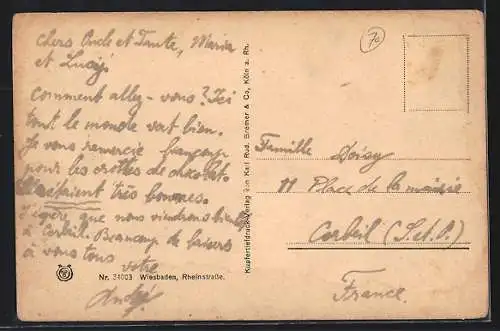 Chers Oncle et Tante, Maria
et Lucy,
Comment allez-vous? Ici
tout le monde vat bien.
Je vous remercie beaucoup
pour les crottes de chocolat.
étaient très bonnes.
J'espère que nous viendrons bientôt
à Corbeil. Beaucoup de baisers
à vous tous
votre
André
Nr. 34003 Wiesbaden, Rheinstraße.
Kupfertiefdruck-Verlag von Karl Rud. Bremer & Co, Köln a. Rh.
70
Famille Doisy
11 Place de la mairie
Corbeil (S.et.O.)
France.